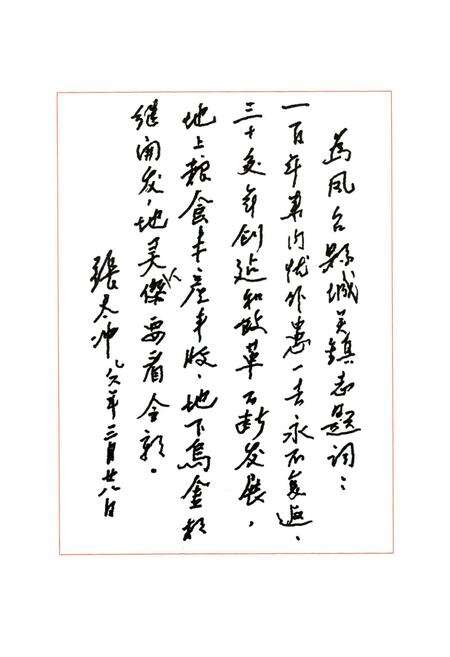 為凤台縣城关鎮志題詞：
一百年来内忧外患一去永不复返、
三十多年创造和改革不断发展，
地上粮食丰产丰收、地下烏金相
继开发，地灵人傑要看今朝。
張太冲 八六年三月廿八日